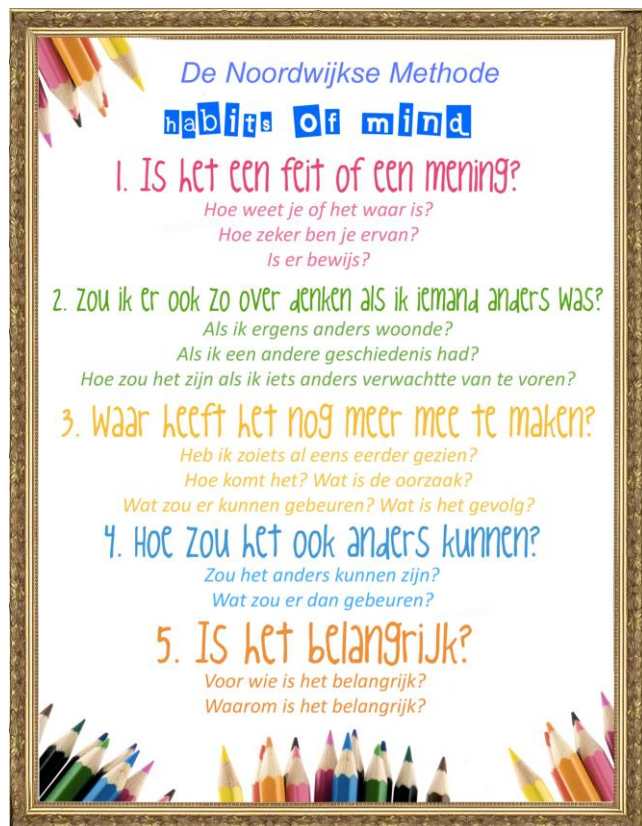 De Noordwijkse Methode
habits of mind
1. Is het een feit of een mening?
Hoe weet je of het waar is?
Hoe zeker ben je ervan?
Is er bewijs?
2. Zou ik er ook zo over denken als ik iemand anders was?
Als ik ergens anders woonde?
Als ik een andere geschiedenis had?
Hoe zou het zijn als ik iets anders verwachtte van te voren?
3. Waar heeft het nog meer mee te maken?
Heb ik zoiets al eens eerder gezien?
Hoe komt het? Wat is de oorzaak?
Wat zou er kunnen gebeuren? Wat is het gevolg?
4. Hoe zou het ook anders kunnen?
Zou het anders kunnen zijn?
Wat zou er dan gebeuren?
5. Is het belangrijk?
Voor wie is het belangrijk?
Waarom is het belangrijk?